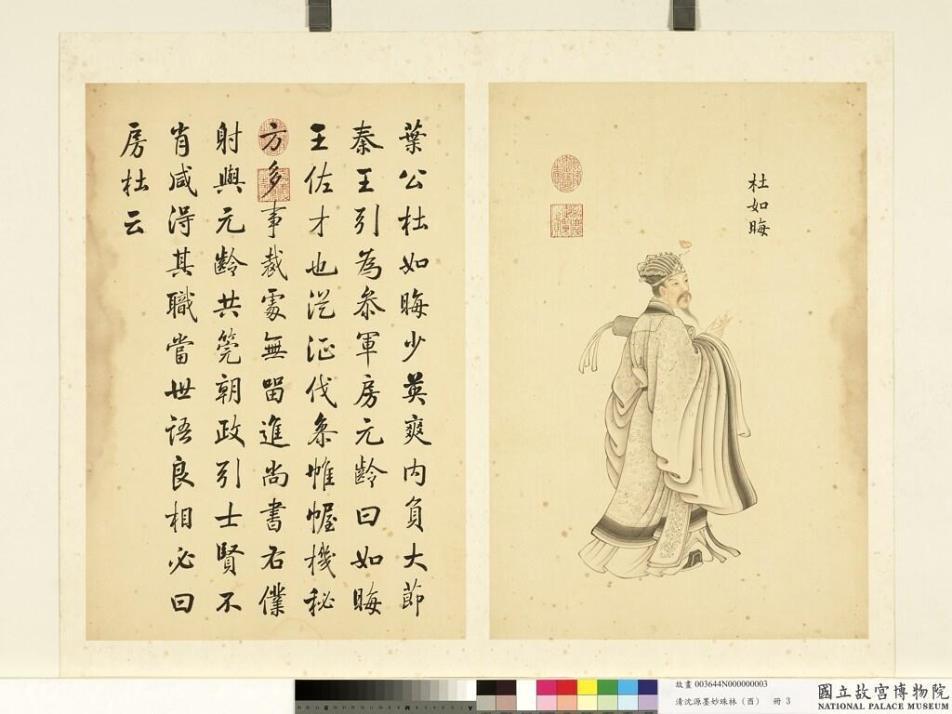 杜如晦
葉公杜如晦少英爽內負大節
秦王引為叅軍房元齡曰如晦
王佐才也從征伐叅帷幄機秘
方多事裁處無留進尚書右僕
射與元齡共筦朝政引士賢不
肖咸得其職當世語良相必曰
房杜云
故畫 003644N000000003
清沈源墨妙珠林（酉） 冊 3
國立故宮博物院
NATIONAL PALACE MUSEUM